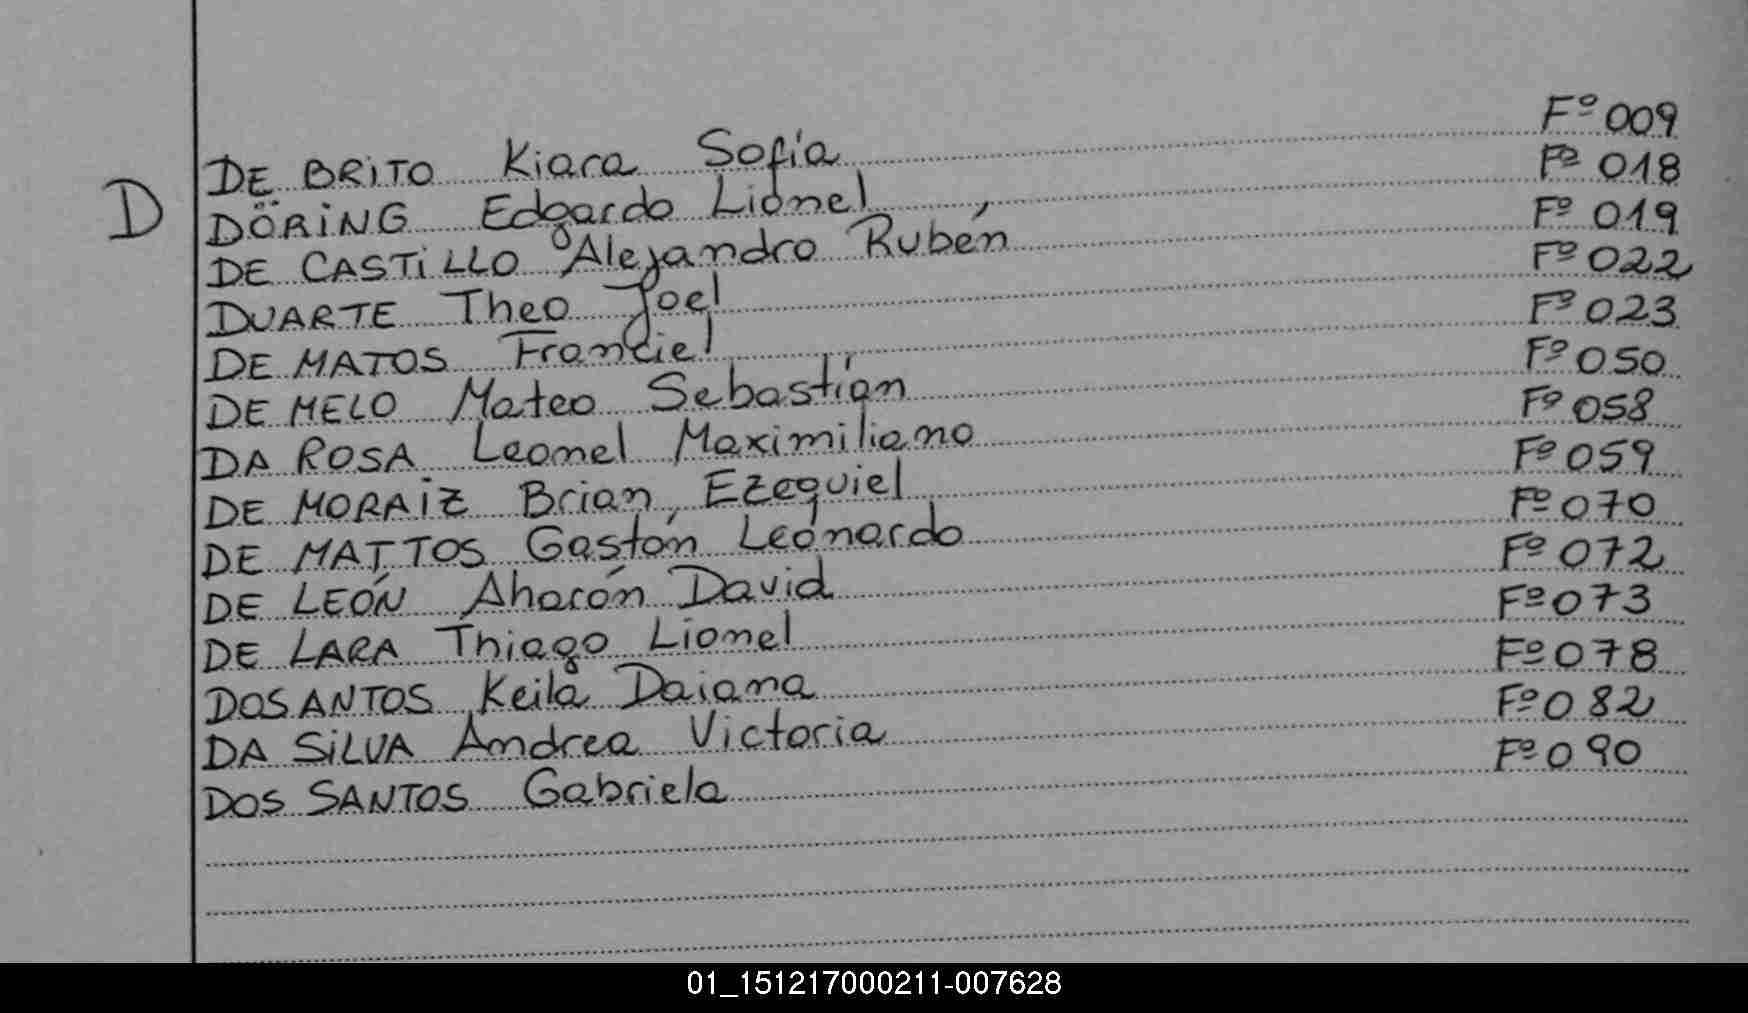 D
DE BRiTO Kiara Sofía Fº 009
DÖRiNG Edgardo Lionel Fº 018
DE CASTiLLO Alejandro Rubén Fº 019
DUARTE Theo Joel Fº 022
DE MATOS Franciel Fº 023
DE MELO Mateo Sebastián Fº 050
DA ROSA Leonel Maximiliano Fº 058
DE MORAiZ Brian Ezequiel Fº 059
DE MATTOS Gastón Leonardo Fº 070
DE LEÓN Aharón David Fº 072
DE LARA Thiago Lionel Fº 073
DOSANTOS Keila Daiana Fº 078
DA SiLVA Andrea Victoria Fº 082
DOS SANTOS Gabriela Fº 090
01_151217000211-007628